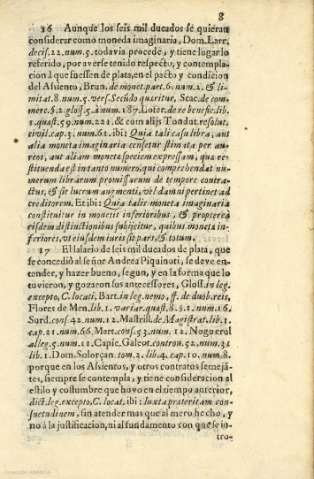 8
26 Aunque los seis mil ducados se quieran
considerar como moneda imaginaria, Dom. Larr.
decis. 22. num. 5. todavia procede, y tiene lugar lo
referido, por averse tenido respecto, y contempla-
cion à que fuessen de plata, en el pacto y condicion
del Assiento, Brun. de monet. part. 6. num. 2. & li-
mitat. 8. num. 5. vers. Secundo quæritur, Stac. de com-
merc. §. 2. glos. 3. à num. 187. Loter. de re benefic. lib.
1. quæst. 39. num. 221. & cum alijs Tondut. resolut.
civil. cap. 3. num. 62. ibi: Quia tali casu libra, aut
alia moneta imaginaria censetur stimata per au-
reos, aut aliam moneta speciem expressam, quæ re-
stituenda est in tanto numero, qui comprehendat nu-
merum librarum promissarum de tempore contra-
ctus, & sic lucrum augmenti, vel damni pertinet ad
creditorem. Et ibi: Quia talis moneta imaginaria
constituitur in monetis inferioribus, & propterea
eisdem distinctionibus subijcitur, quibus moneta in-
feriores, ut eiusdem iuris sit pars, & totum.
27 El salario de seis mil ducados de plata, que
se concediò al señor Andrea Piquinoti, se deve en-
tender, y hazer bueno, segun, y en la forma que lo
tuvieron, y gozaron sus antecessores, Gloss. in leg.
excepto, C. locati, Bart. in leg. nemo, ff. de duob. reis,
Flores de Men. lib. 1. variar. quæst. 8. §. 1. num. 16.
Surd. cons. 42. num. 12. Mastrill. de Magistrat. lib. 1.
cap. 21. num. 66. Mart. cons. 53. num. 12. Noguerol
alleg. 5. num. 11. Capic. Galeot. controu. 52. num. 31
lib. 1. Dom. Solorçan. tom. 2. lib. 4. cap. 10. num. 8.
porque en los Assientos, y otros contratos semejã-
tes, siempre se contempla, y tiene consideracion al
estilo y costumbre que huvo en el tiempo anterior,
dict. leg. excepto, C. locat. ibi: Iuxta præteritam con-
suetudinem, sin atender mas que al mero hecho, y
no à la justificacion, ni al fundamento con que se in-
tro-